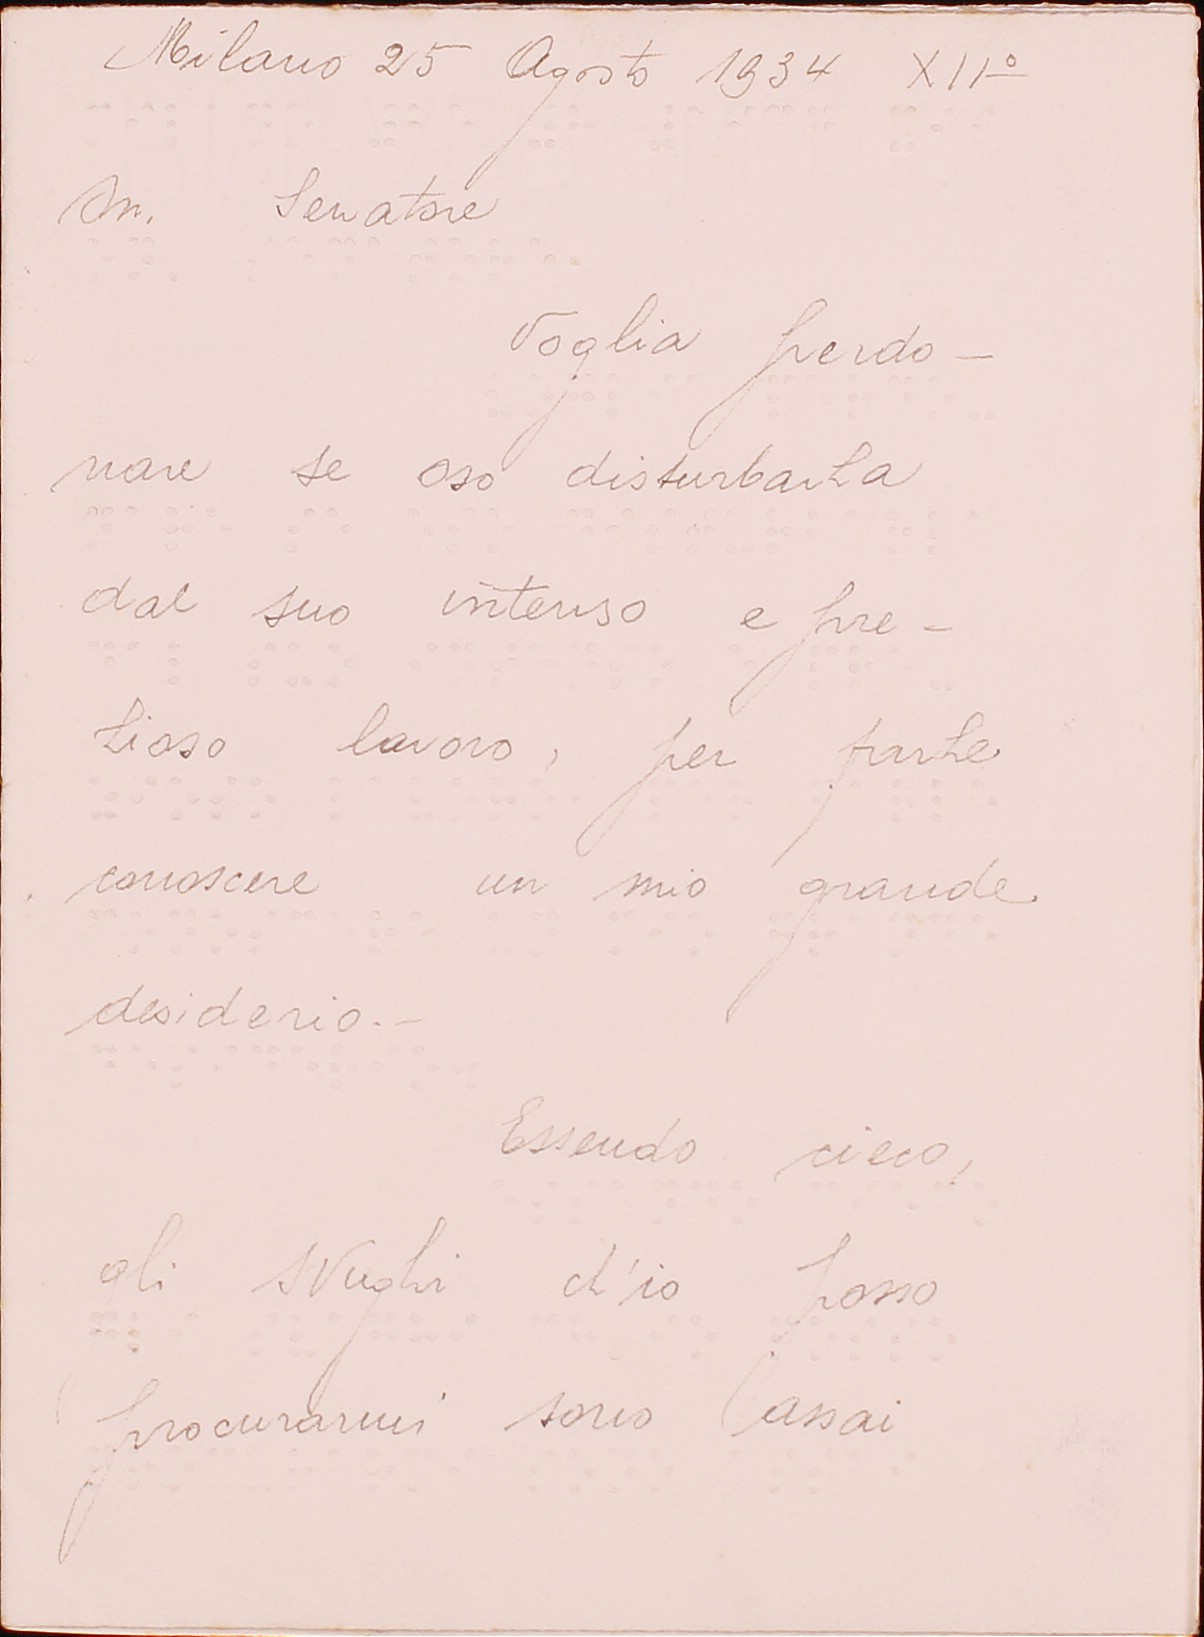 Milano 25 Agosto 1934 XIIº
Sn. Senatore
Voglia perdo-
nare se oso disturbarLa
dal suo intenso e pre-
zioso lavoro, per farLe
conoscere un mio grande
desiderio.-
Essendo cieco,
gli svaghi ch'io posso
procurarmi sono assai